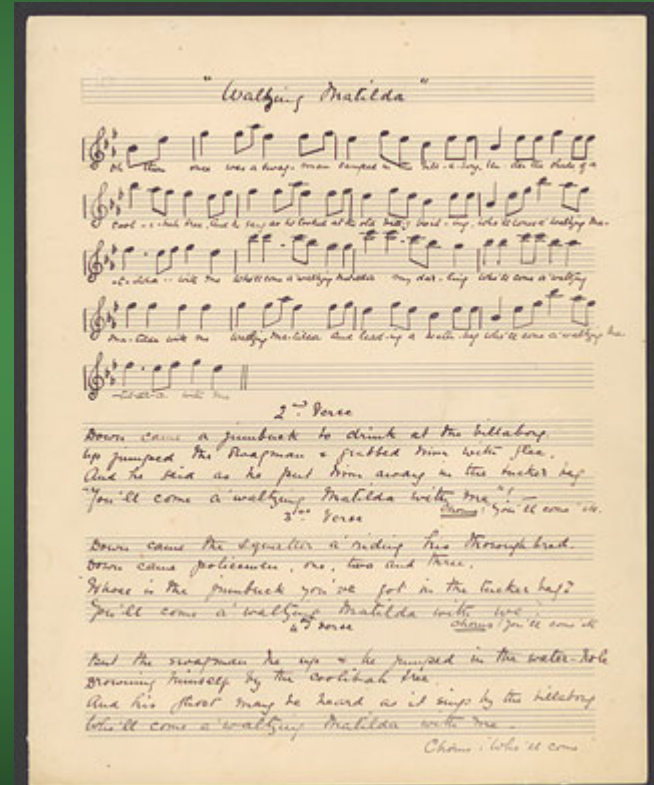 "Waltzing Matilda"
Oh there once was a swag-man camped in the bill-a-bong, Un-der the shade of a
Cool-i-bah tree, And he sang as he looked at the old billy boil-ing, Who'll come a'waltzing Ma-
-til-da with me Who'll come a'waltzing Matilda my dar-ling Who'll come a'waltzing
Ma-tilda with me Waltzing Matilda and lead-ing a water-bag who'll come a'waltzing Ma-
-tild-a with me
2nd Verse
Down came a jumbuck to drink at the billabong.
Up jumped the swagman & grabbed him with glee.
And he said as he put him away in the tucker bag
"You'll come a'waltzing Matilda with me"!
Chorus: You'll come etc.
3rd Verse
Down came the squatter a'riding his thoroughbred.
Down came policemen, one, two and three.
Whose is the jumbuck you've got in the tucker bag?
You'll come a'waltzing Matilda with we.
Chorus: You'll come etc
4th Verse
But the swagman he up & he jumped in the water-hole
Drowning himself by the coolibah tree.
And his ghost may be heard as it sings by the billabong
Who'll come a'waltzing Matilda with me.
Chorus: Who'll come